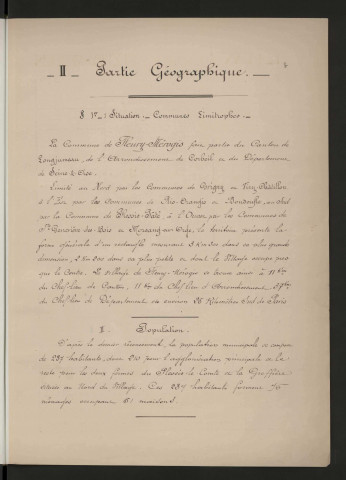 II _ Partie Géographique. _
§ 1er _ Situation _ Communes Limitrophes _
La Commune de Fleury-Mérogis fait partie du Canton de
Longjumeau, de l'Arrondissement de Corbeil et du Département
de Seine & Oise.
Limité au Nord par les Communes de Grigny et Viry-Châtillon
à l'Est par les Communes de Ris-Orangis et Bondoufle, au Sud
par la Commune de Plessis-Pâté à l'Ouest par les Communes de
Ste Geneviève des Bois et Morsang-sur-Orge, le territoire présente la
forme générale d'un rectangle mesurant 3 Km 500 dans sa plus grande
dimension, 2 Km 500 dans sa plus petite et dont le Village occupe presque
le Centre. Le Village de Fleury-Mérogis se trouve situé à
du Chef-lieu de Canton, 11 Km du Chef-lieu d'Arrondissement
du Chef-lieu de Département et environ 28 Kilomètres Sud de Paris
§. Population.
D'après le dernier dénombrement, la population municipale se compose
de 237 habitants, dont 210 pour l'agglomération principale et le
reste pour les deux fermes du Plessis le Comte et de la Greffière
situées au Nord du Village. Ces 237 habitants forment
ménages occupant maisons.